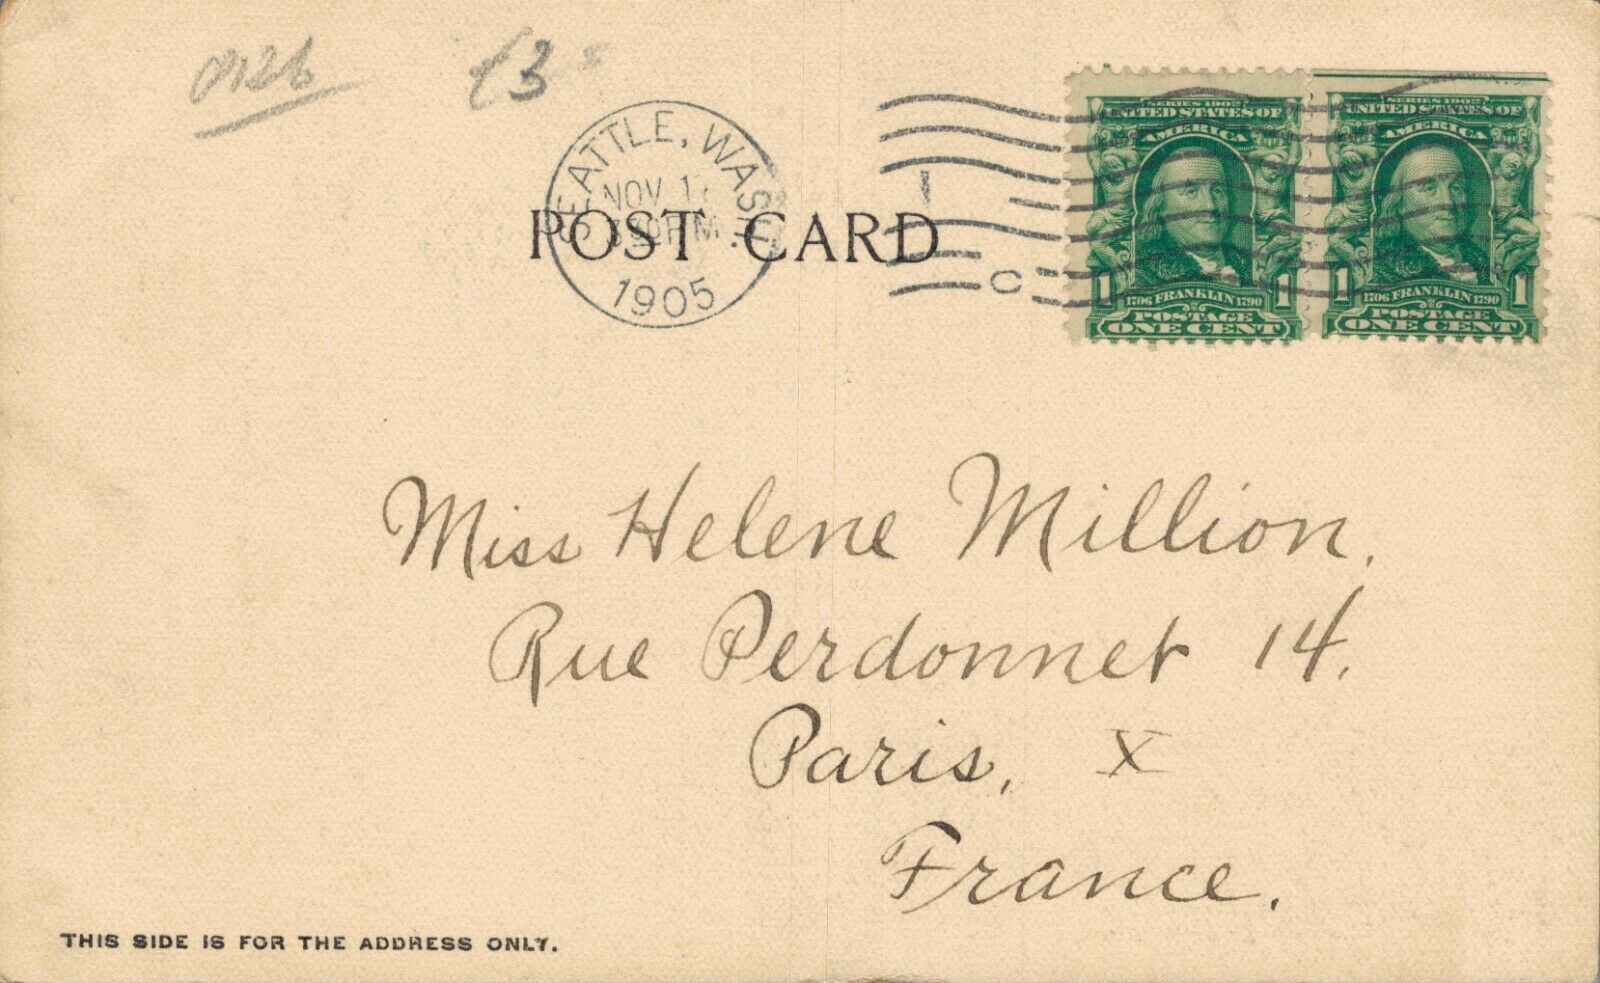 £3
SEATTLE, WASH.
NOV 1
30 P M
1905
C
POST CARD
SERIES 1902 SERIES 1902
UNITED STATES OF UNITED STATES OF
AMERICA AMERICA
1 1706 FRANKLIN 1790 1 1 1706 FRANKLIN 1790 1
POSTAGE POSTAGE
ONE CENT ONE CENT
Miss Helene Million,
Rue Perdonnet 14.
Paris, X
France.
THIS SIDE IS FOR THE ADDRESS ONLY.